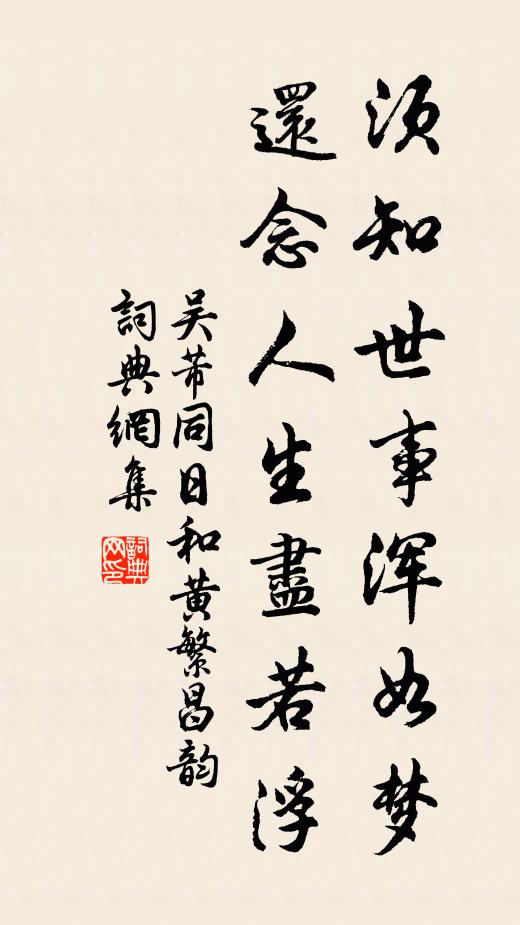 须知世事浑如梦
還念人生盡若浮
吴芾同日和黄繁昌韵
詞典網集
詞典网印